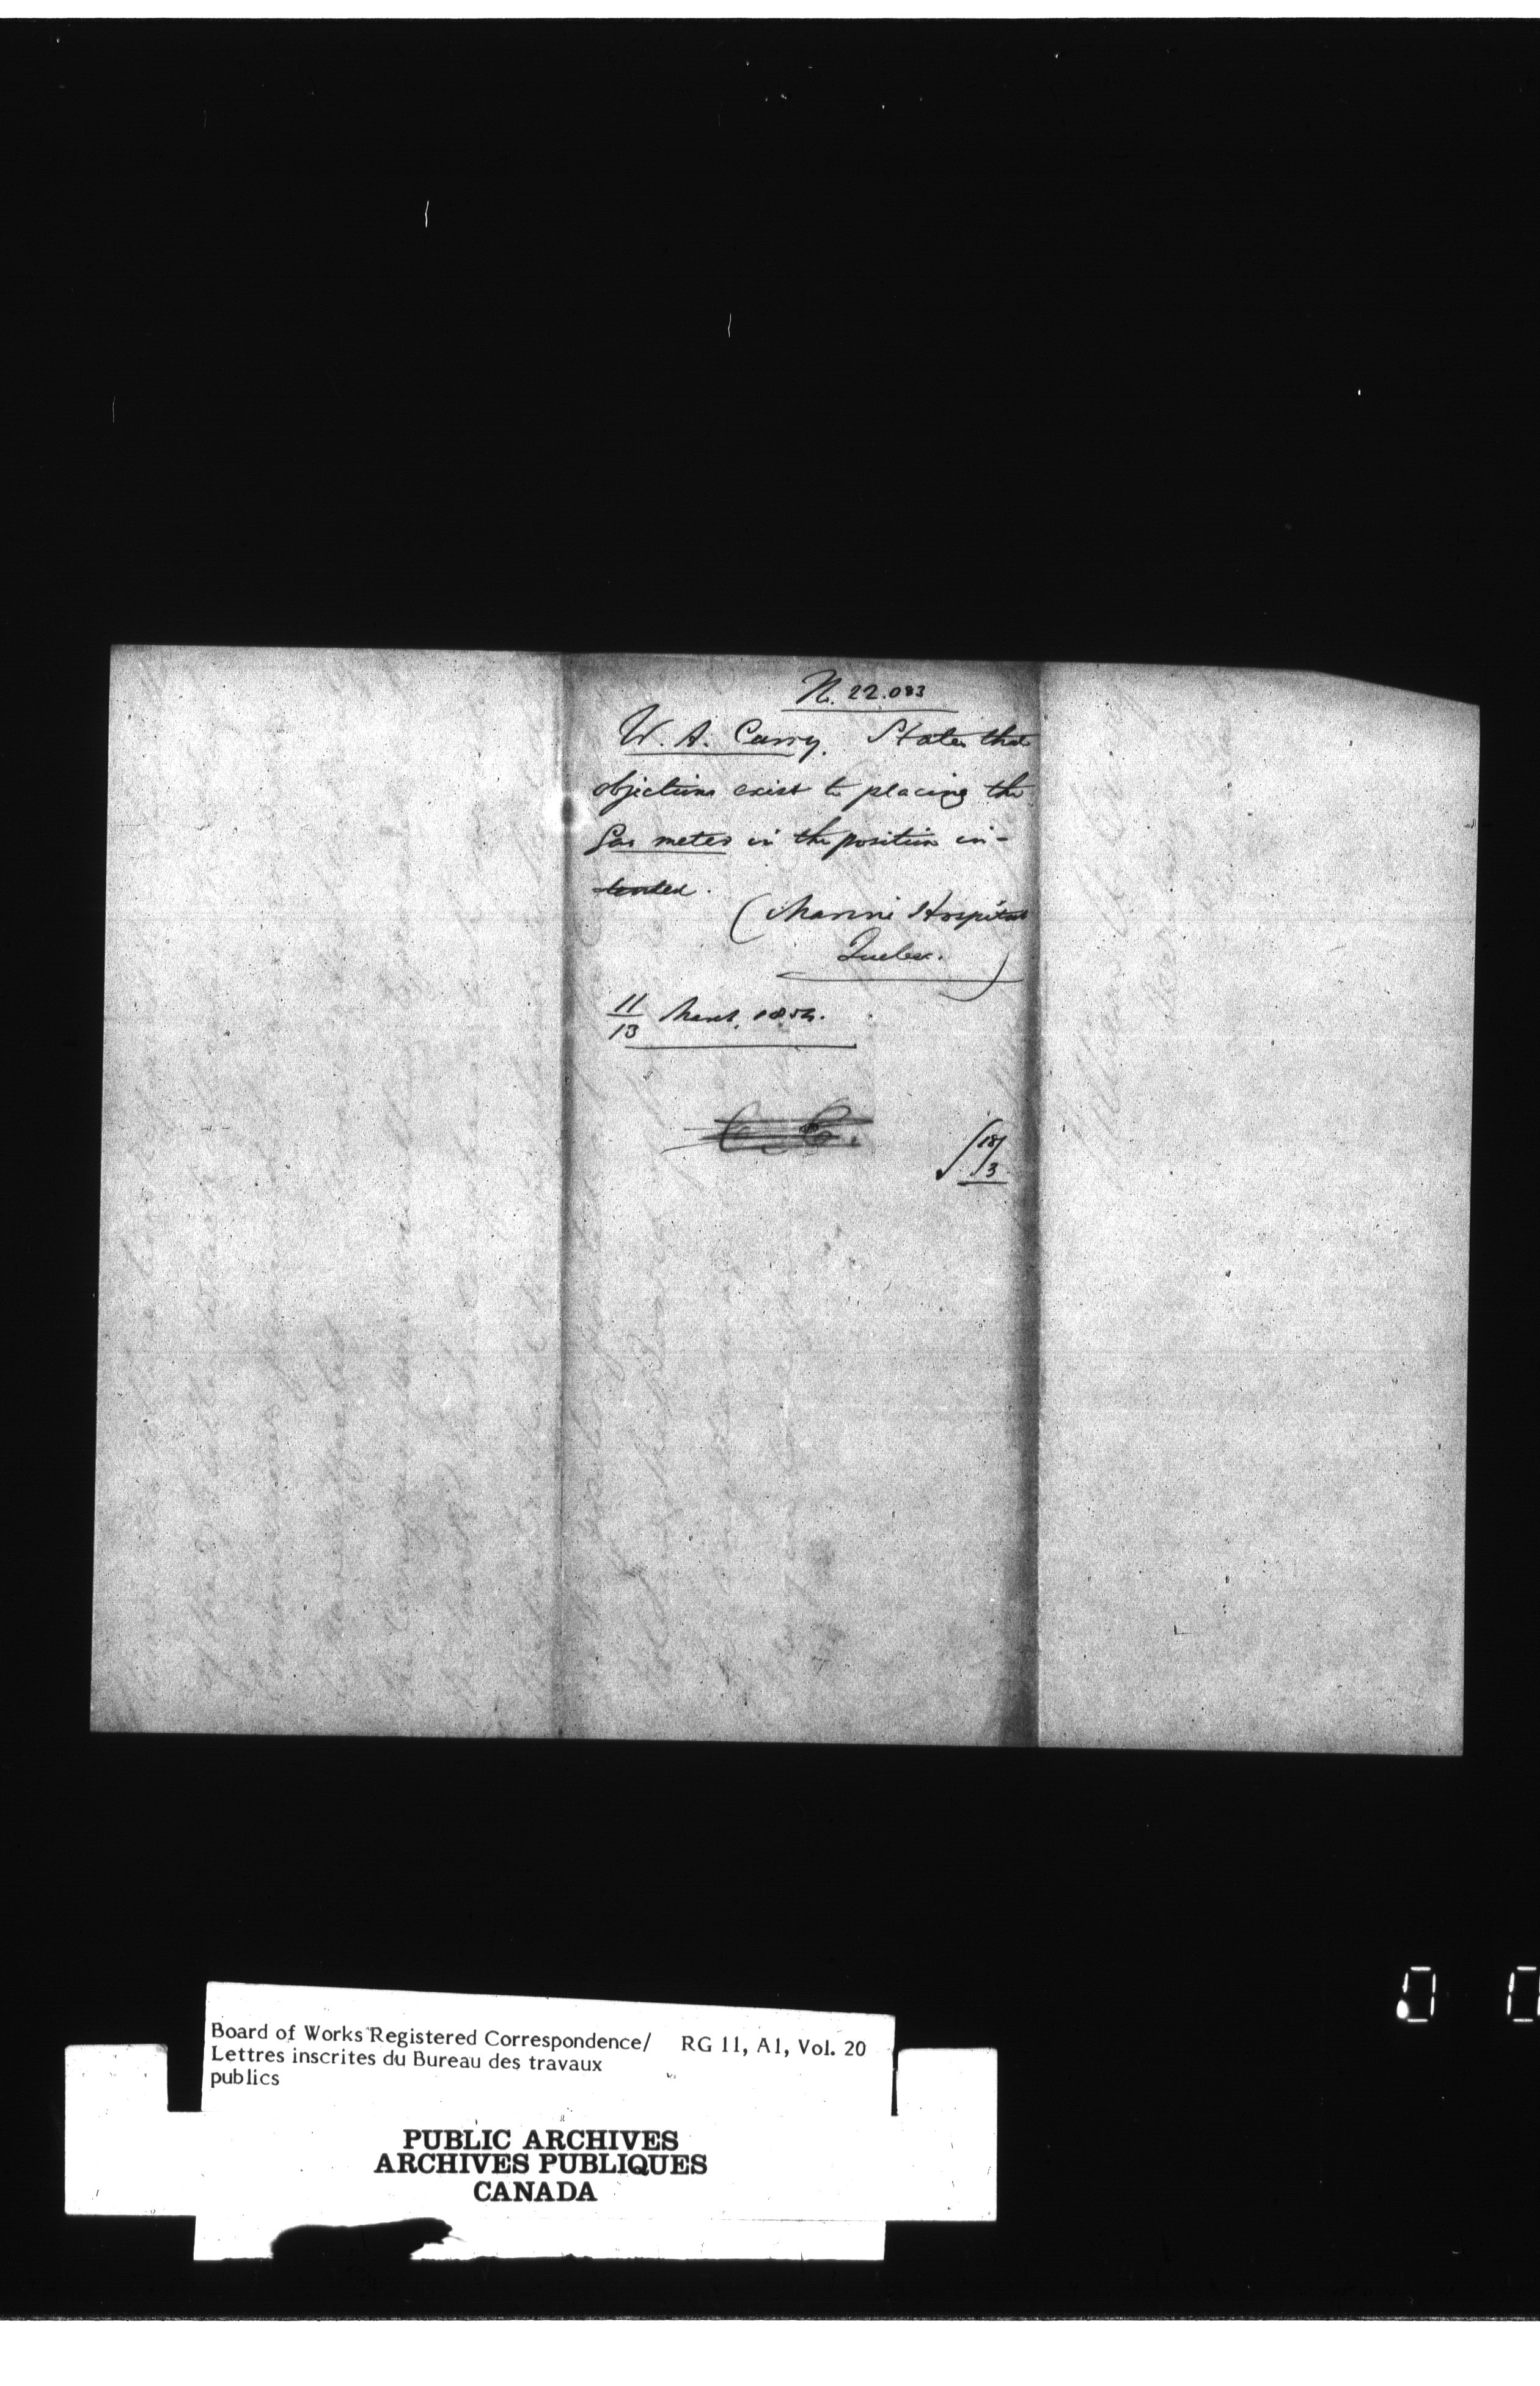 N. 22.083
W. A. Curry. States that
objections exist to placing the
Gas meter in the position in-
tended.
(Marine Hospital
Quebec.)
11/13 March, 1854.
C. C.
18/3
Board of Works Registered Correspondence/ RG 11, A1, Vol. 20
Lettres inscrites du Bureau des travaux
publics
PUBLIC ARCHIVES
ARCHIVES PUBLIQUES
CANADA
0 0